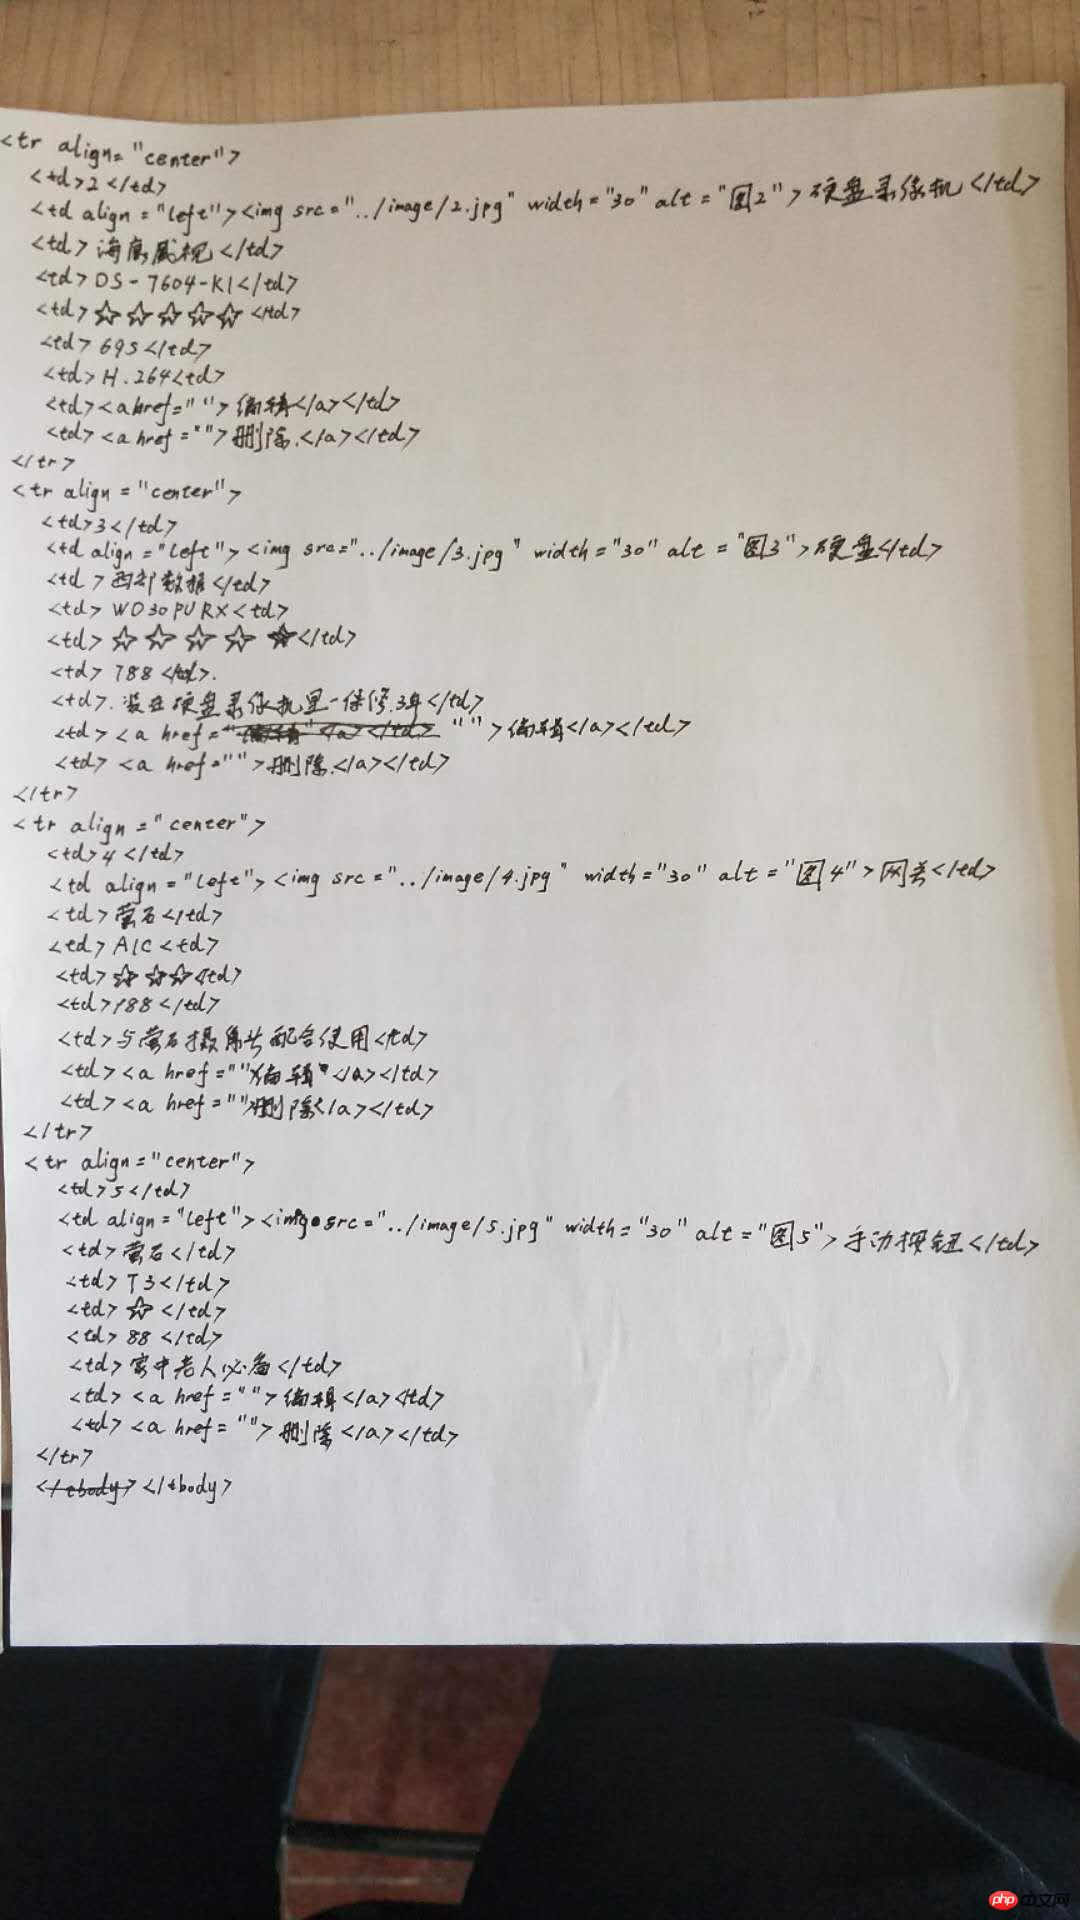 <tr align="center">
<td>2</td>
<td align="left"><img src="../image/2.jpg" width="30" alt="图2">硬盘录像机</td>
<td>海康威视</td>
<td>DS-7604-K1</td>
<td>☆☆☆☆☆</td>
<td>695</td>
<td>H.264<td>
<td><a href="">编辑</a></td>
<td><a href="">删除</a></td>
</tr>
<tr align="center">
<td>3</td>
<td align="left"><img src="../image/3.jpg" width="30" alt="图3">硬盘</td>
<td>西部数据</td>
<td>WD30PURX<td>
<td>☆☆☆☆☆</td>
<td>788</td>.
<td>.装在硬盘录像机里-保修3年</td>
<td><a href="">编辑</a></td>
<td><a href="">删除</a></td>
</tr>
<tr align="center">
<td>4</td>
<td align="left"><img src="../image/4.jpg" width="30" alt="图4">网关</td>
<td>萤石</td>
<td>A1C<td>
<td>☆☆☆</td>
<td>188</td>
<td>与萤石摄像头配合使用</td>
<td><a href="">编辑</a></td>
<td><a href="">删除</a></td>
</tr>
<tr align="center">
<td>5</td>
<td align="left"><img src="../image/5.jpg" width="30" alt="图5">手动按钮</td>
<td>萤石</td>
<td>T3</td>
<td>☆</td>
<td>88</td>
<td>家中老人必备</td>
<td><a href="">编辑</a></td>
<td><a href="">删除</a></td>
</tr>
</tbody>
php中文网